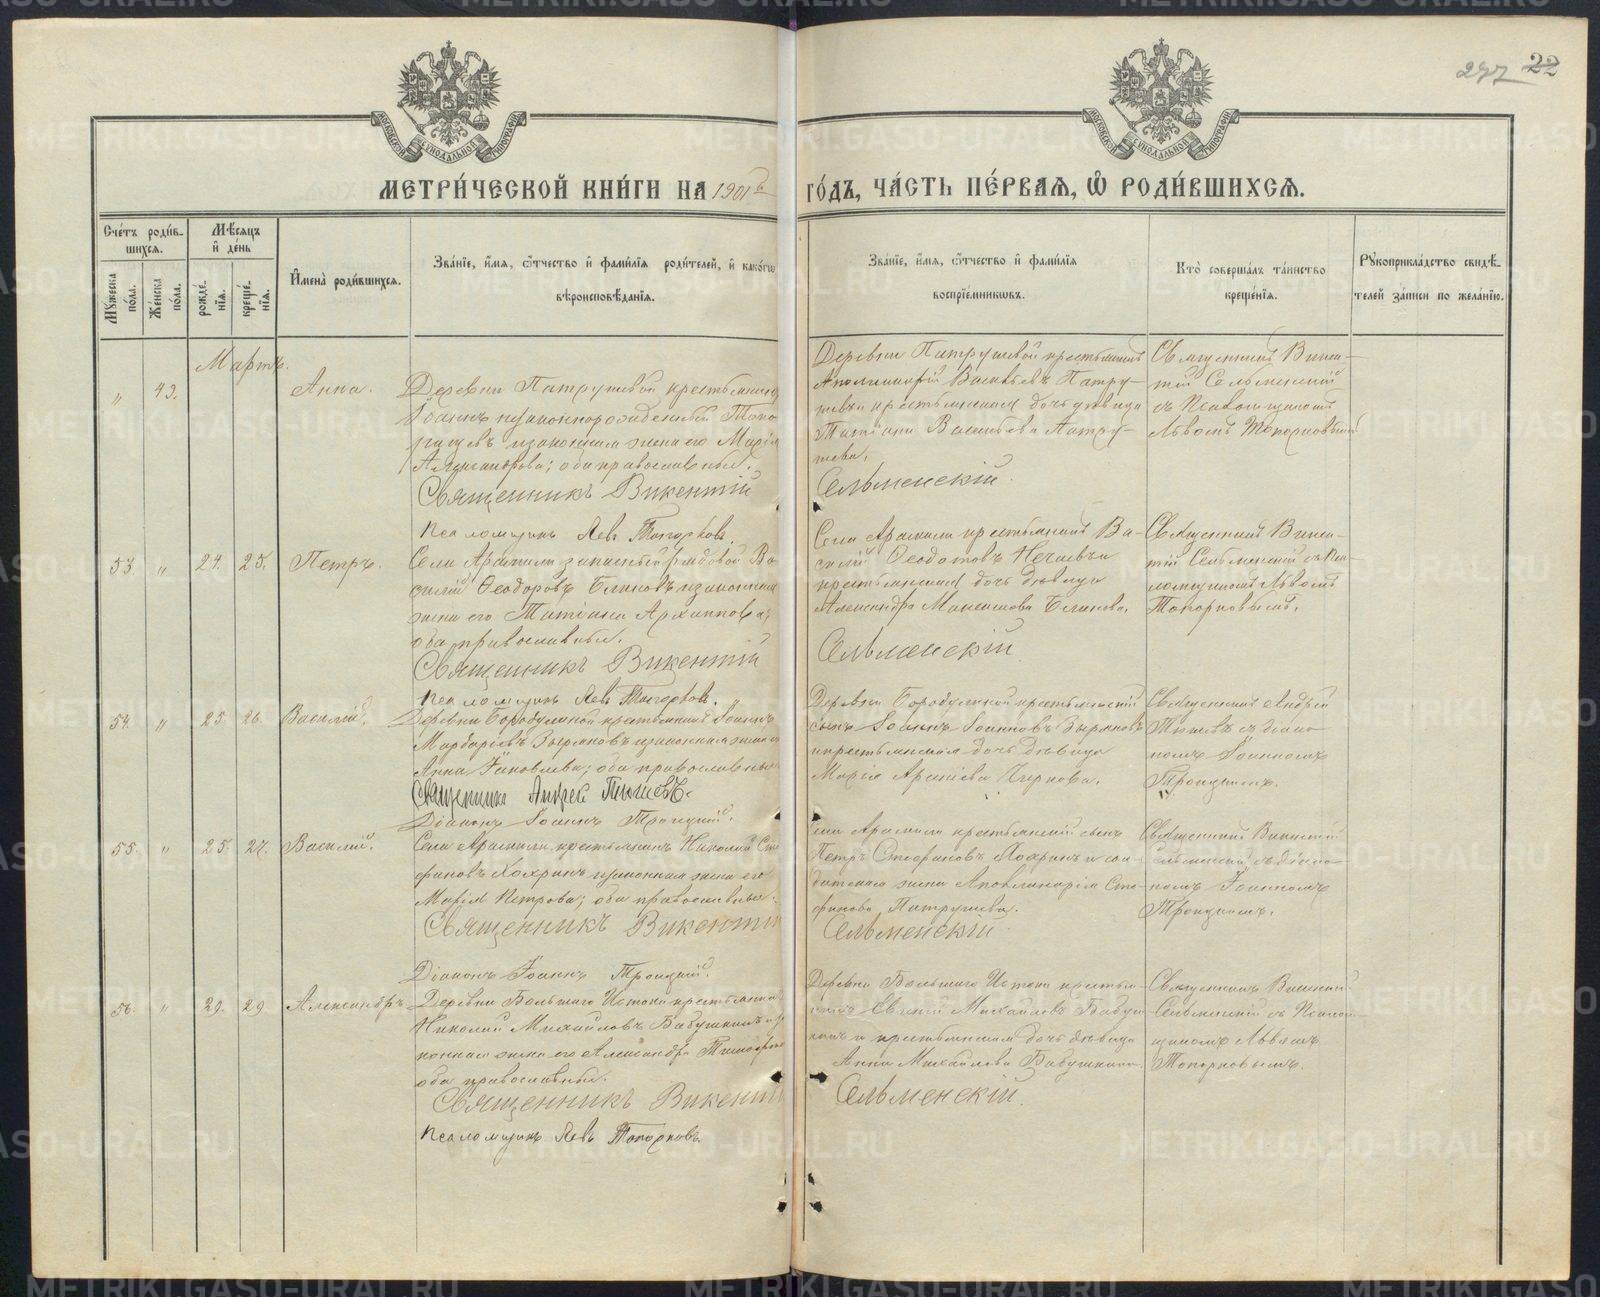 277 22
МЕТРИ́ЧЕСКОЙ КНИ́ГИ НА 1901й ГО́ДЪ, ЧА́СТЬ ПЕ́РВАѦ, Ѡ҆ РОДИ́ВШИХСѦ.
Сче́тъ роди́вшихсѧ.
Мꙋ́жеска по́ла.
Же́нска по́ла.
Мѣ́сѧцъ и҆ де́нь
рожде́нїѧ.
креще́нїѧ.
И҆мена̀ роди́вшихсѧ.
Зва́нїе, и҆́мѧ, ѻ҆́тчество и҆ фами́лїѧ роди́телей, и҆ како́гѡ
вѣроисповѣ́данїѧ.
Зва́нїе, и҆́мѧ, ѻ҆́тчество и҆ фами́лїѧ
воспрїе́мникѡвъ.
Кто̀ соверша́лъ та́инство
креще́нїѧ.
Рꙋкоприкла́дство свидѣ́-
телей за́писи по жела́нїю.
Мартъ.
„ 43. Анна.
Деревни Патрушевой крестьянинъ
Іоаннъ незаконнорожденный Топо
рищевъ и законная жена его Марія
Александрова; оба православные.
Священникъ Викентій
Псаломщикъ Левъ Топорковъ.
Деревни Патрушевой крестьянинъ
Аполлинарій Васильевъ Патру-
шевъ и крестьянская дочь девица
Татіана Васильева Патру-
шева.
Сельменскій.
Священникъ Викен-
тій Сельменскій
съ Псаломщикомъ
Львомъ Топорковымъ
53. „ 24. 25. Петръ.
Села Арамили запасный рядовой Ва
силій Ѳеодоровъ Блиновъ и законная
жена его Татіана Архиппова;
оба православные.
Священникъ Викентій
Псаломщикъ Левъ Топорковъ.
Села Арамили крестьянинъ Ва-
силій Ѳеодотовъ Нечаевъ и
крестьянская дочь девица
Александра Максимова Блинова.
Сельменскій.
Священникъ Викен-
тій Сельменскій съ Пса-
ломщикомъ Львомъ
Топорковымъ.
54. „ 25. 26. Василій.
Деревни Бородулиной крестьянинъ Іоаннъ
Зыряновъ и законная жена
Анна Іаковлева; оба православные
Священникъ Андрей Тюшевъ.
Діаконъ Іоаннъ Троицкій.
Деревни Бородулиной крестьянскій
сынъ Іоаннъ Іоанновъ Зыряновъ
и крестьянская дочь девица
Марія Арсеніева Чиркова.
Священникъ Андрей
Тюшевъ съ діако-
номъ Іоанномъ
Троицкимъ.
55. „ 25. 27. Василій.
Села Арамили крестьянинъ Николай Сте
фановъ Хохринъ и законная жена его
Марія Петрова; оба православные.
Священникъ Викентій
Діаконъ Іоаннъ Троицкій.
Села Арамили крестьянскій сынъ
Петръ Стефановъ Хохринъ и сол-
датская жена Аполлинарія Сте-
фанова Патрушева.
Сельменскій
Священникъ Викентій
Сельменскій съ діако-
номъ Іоанномъ
Троицкимъ.
56. „ 29. 29. Александръ.
Деревни Большаго Истока крестьянинъ
Николай Михайловъ Бабушкинъ и за
конная жена его Александра Тимофеева
оба православные.
Священникъ Викентій
Псаломщикъ Левъ Топорковъ.
Деревни Большаго Истока крестья-
нинъ Евгеній Михайловъ Бабуш
кинъ и крестьянская дочь девица
Анна Михайлова Бабушкина.
Сельменскій.
Священникъ Викентій
Сельменскій съ Псалом
щикомъ Львомъ
Топорковымъ.
METRIKI.GASO-URAL.RU